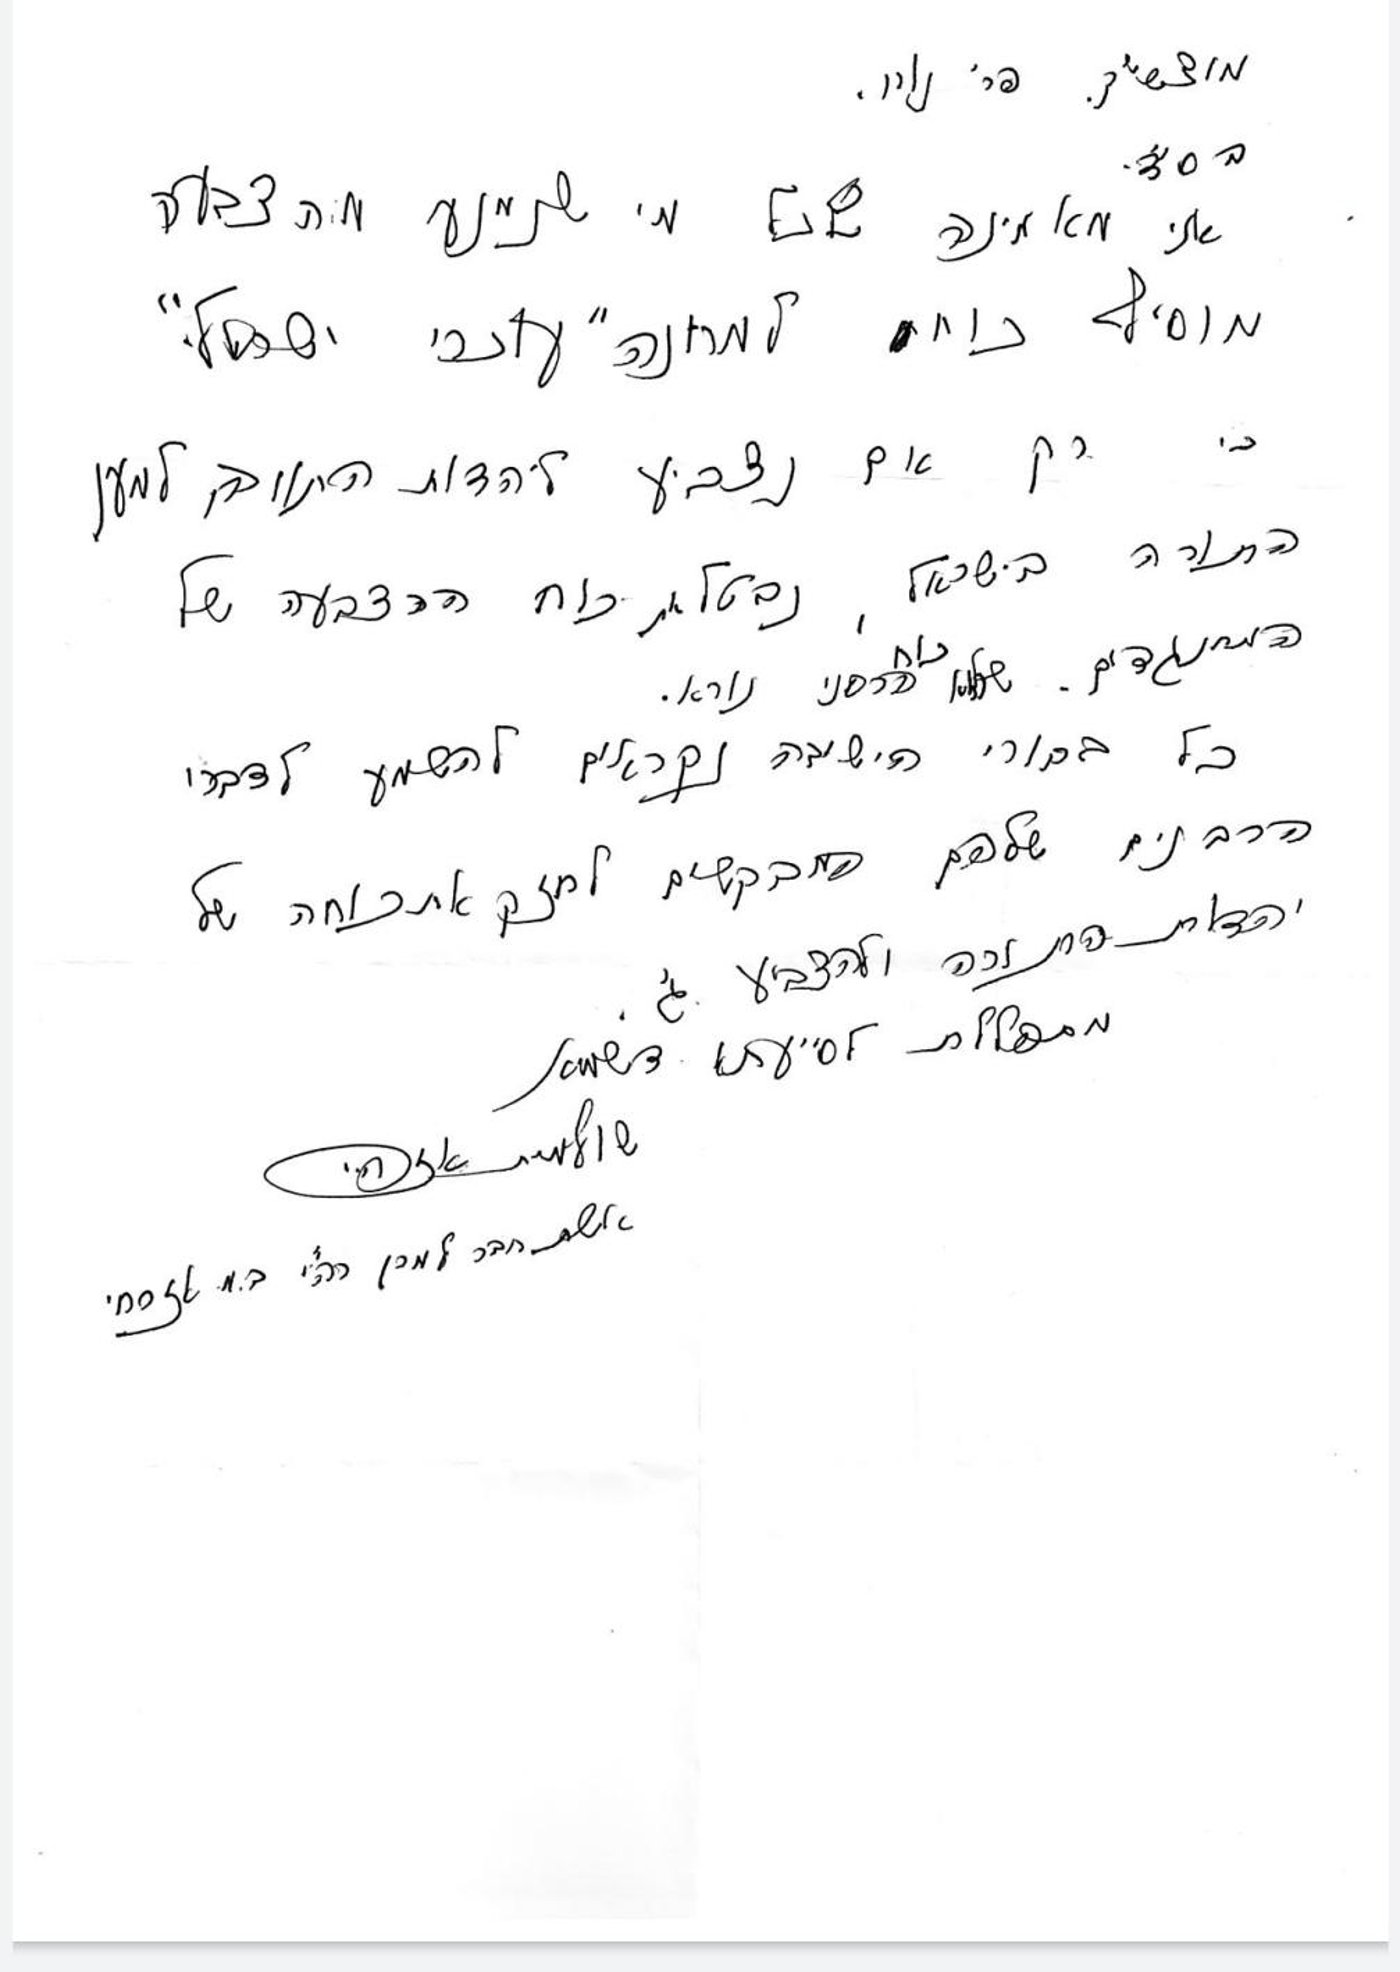 מוצש"ק. פר' נשא.
בס"ד.
אני מאמינה שכל מי שנמנע מהצבעה
מוסיף כוח למחנה "עוכרי ישראל".
כי רק אם נצביע ליהדות התורה למען
התורה בישראל, נבטל את כוח ההצבעה של
המתנגדים - כוח הרסני נורא.
כל בחורי הישיבה נקראים להשמע לדברי
הרבנים שלהם המבקשים לחזק את כוחה של
יהדות התורה ולהצביע ג'.
מתפללת לסייעתא דשמיא
שולמית אזרחי
אשת חבר למרן רה"י ב.מ אזרחי